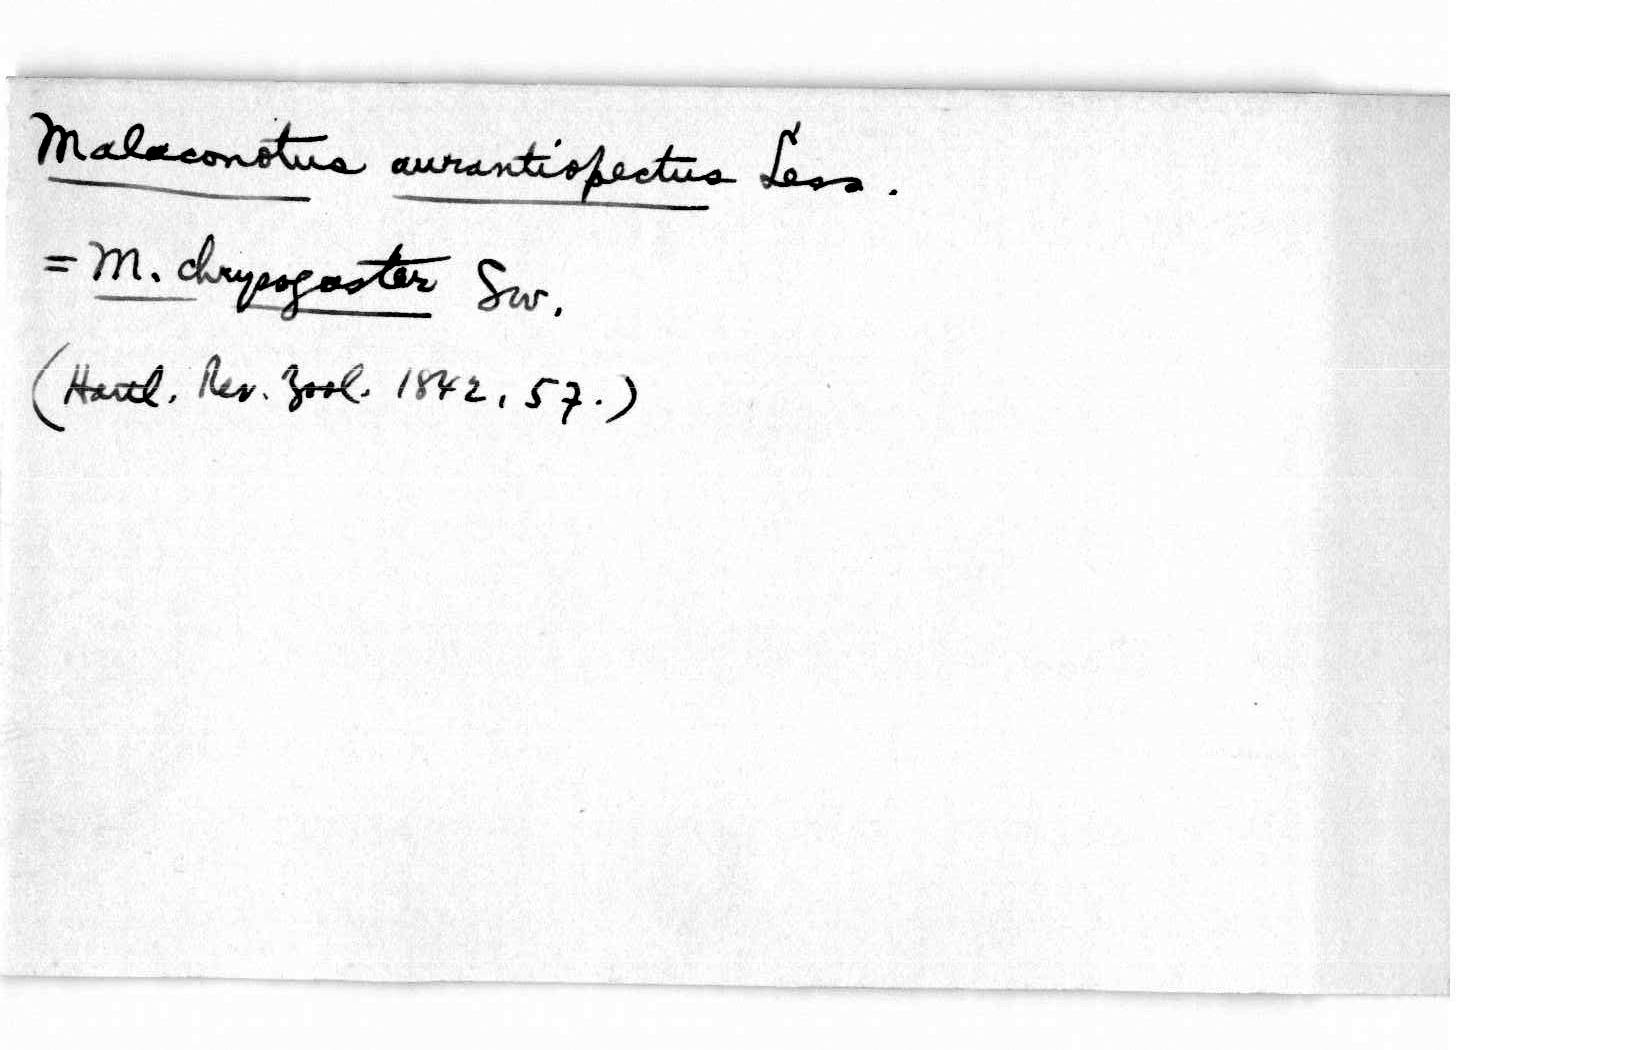 Malaconotus aurantiopectus Less.
= M. chrysogaster Sw.
(Hartl. Rev. Zool. 1842, 57.)